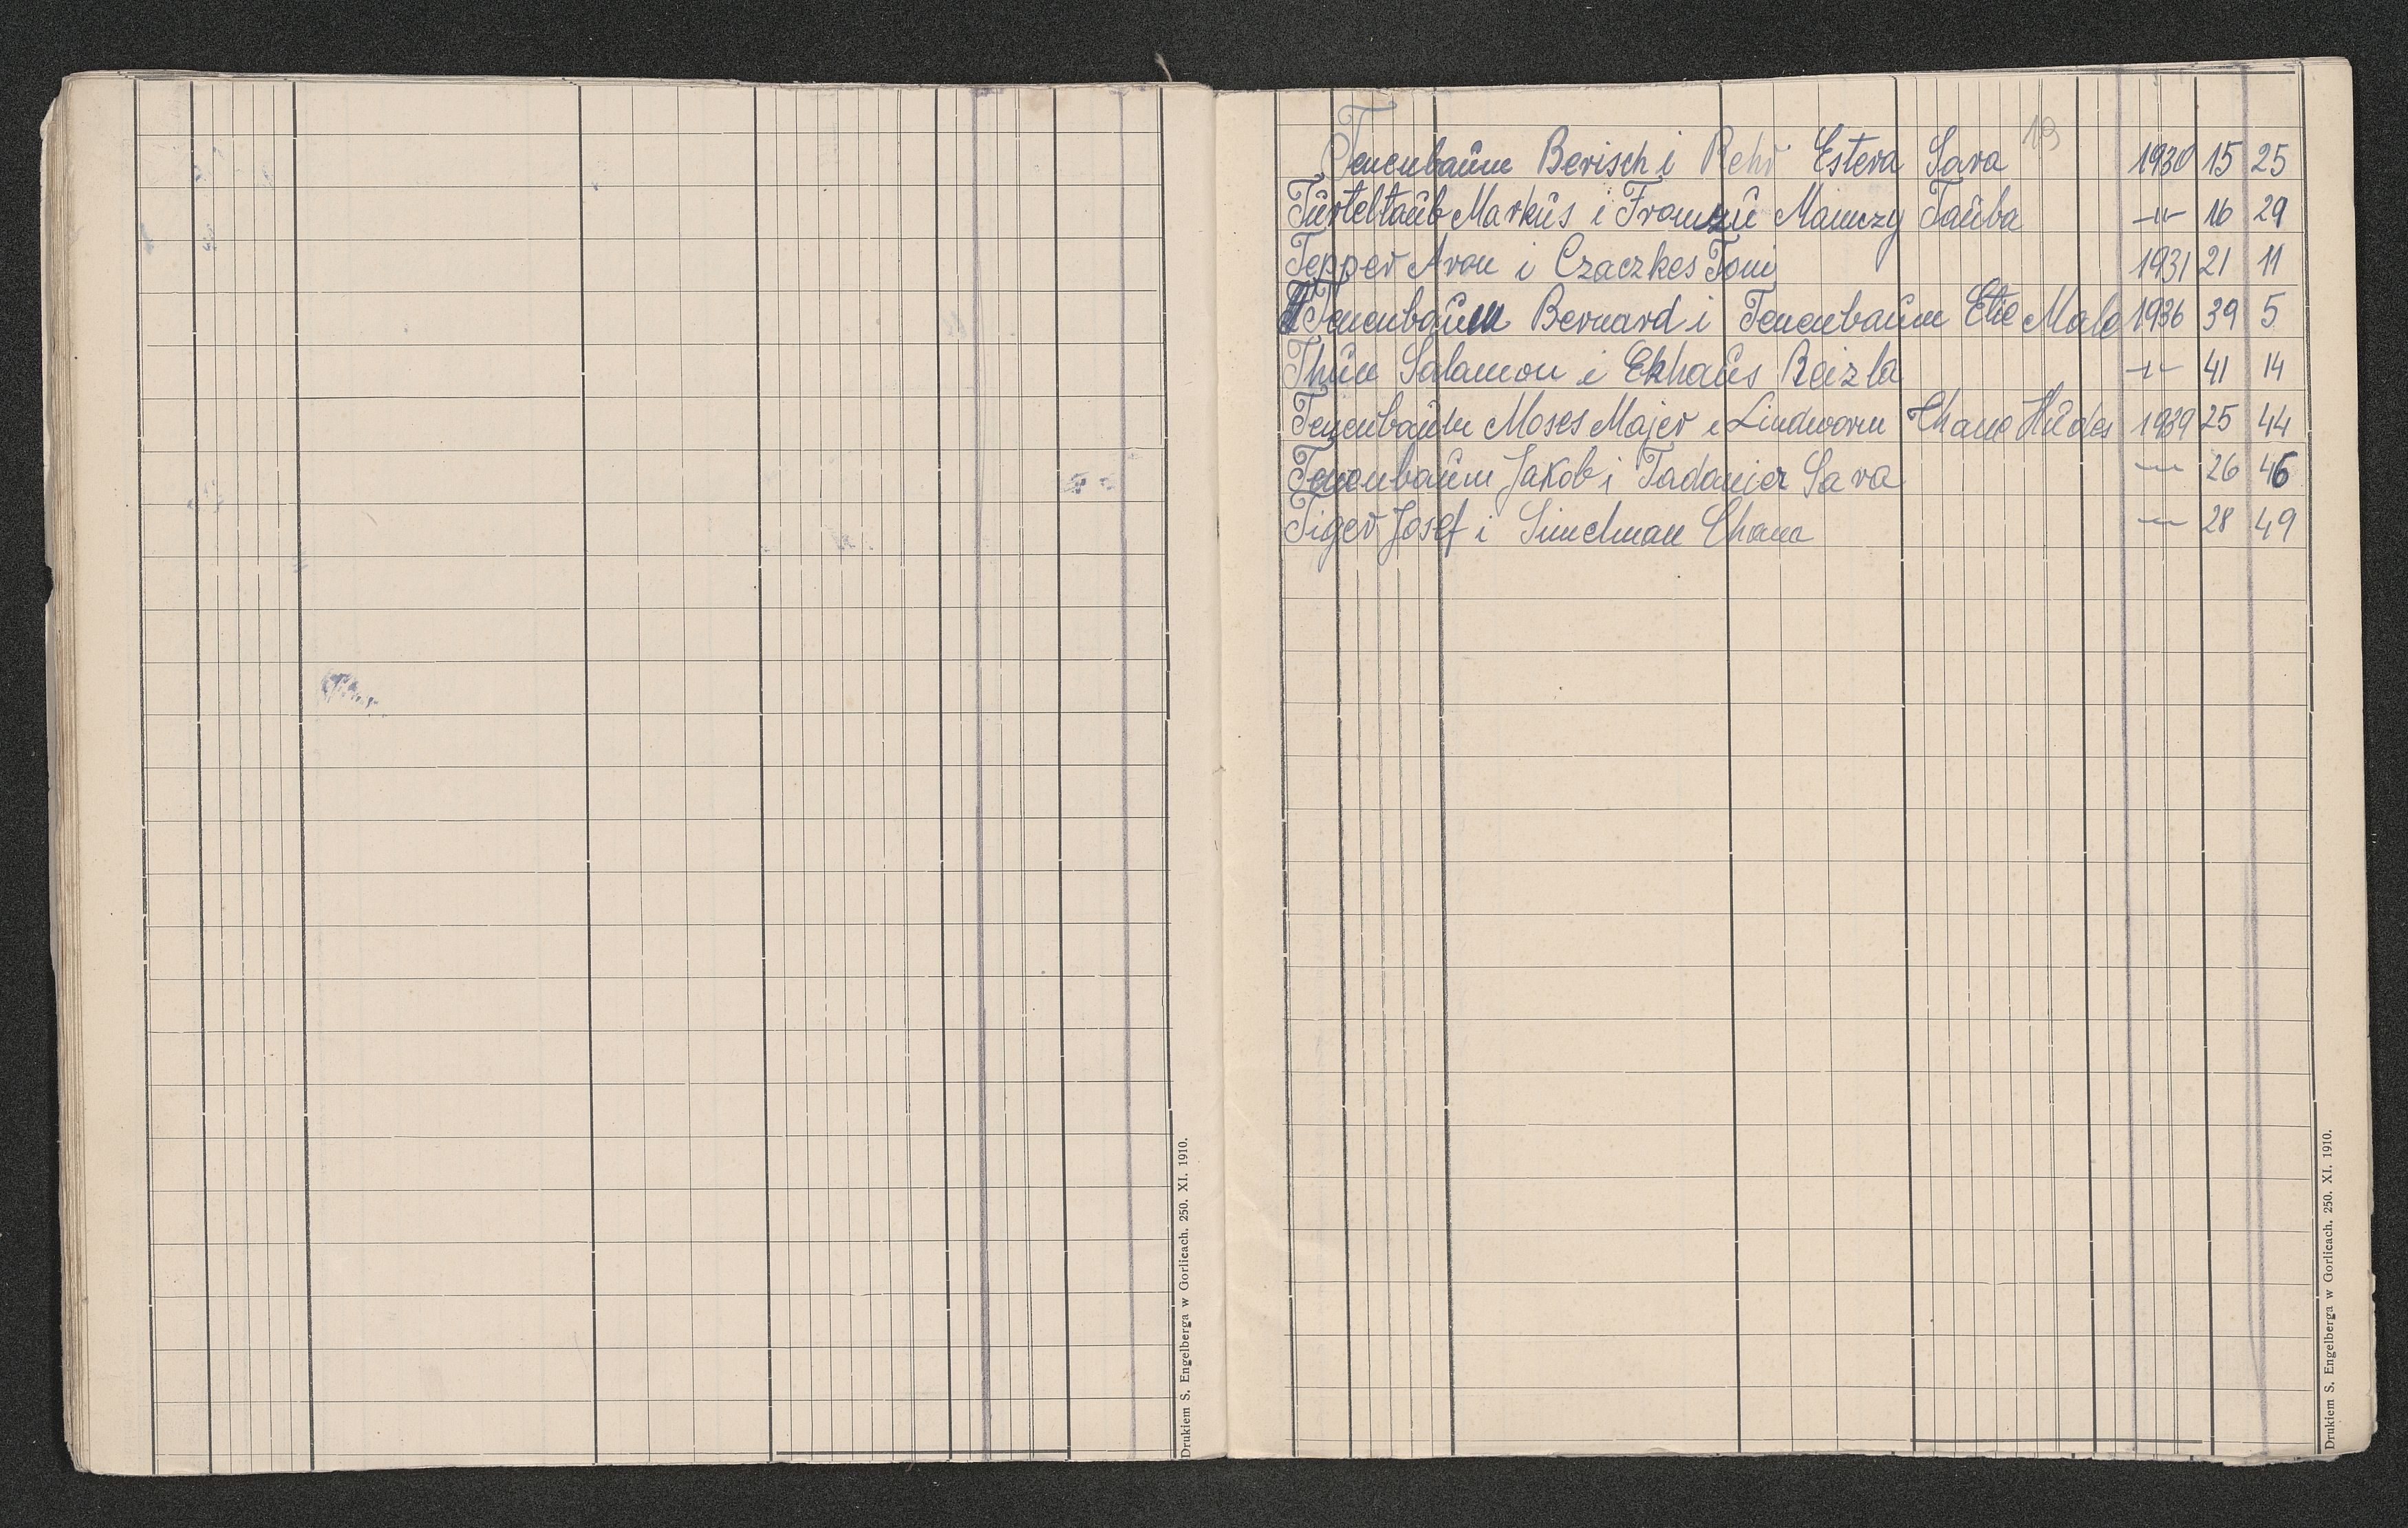 T
19
Tenenbaum Berisch i Rehr Estera Sara 1930 15 25
Türteltaub Markus i Mamczy Tauba -"- 16 29
Tepper Aron i Czaczkes Toni 1931 21 11
Tenenbaum Bernard i Tenenbaum Etie Male 1936 39 5
Thun Salamon i Ekhaus Reizla -"- 41 14
Tenenbaum Moses Majer i Lindworm Chane Hudes 1939 25 44
Tenenbaum Jakob i Tadanier Sara -"- 26 46
Tiger Josef i Simelman Chana -"- 28 49
Drukiem S. Engelberga w Gorlicach. 250. XI. 1910.
Drukiem S. Engelberga w Gorlicach. 250. XI. 1910.